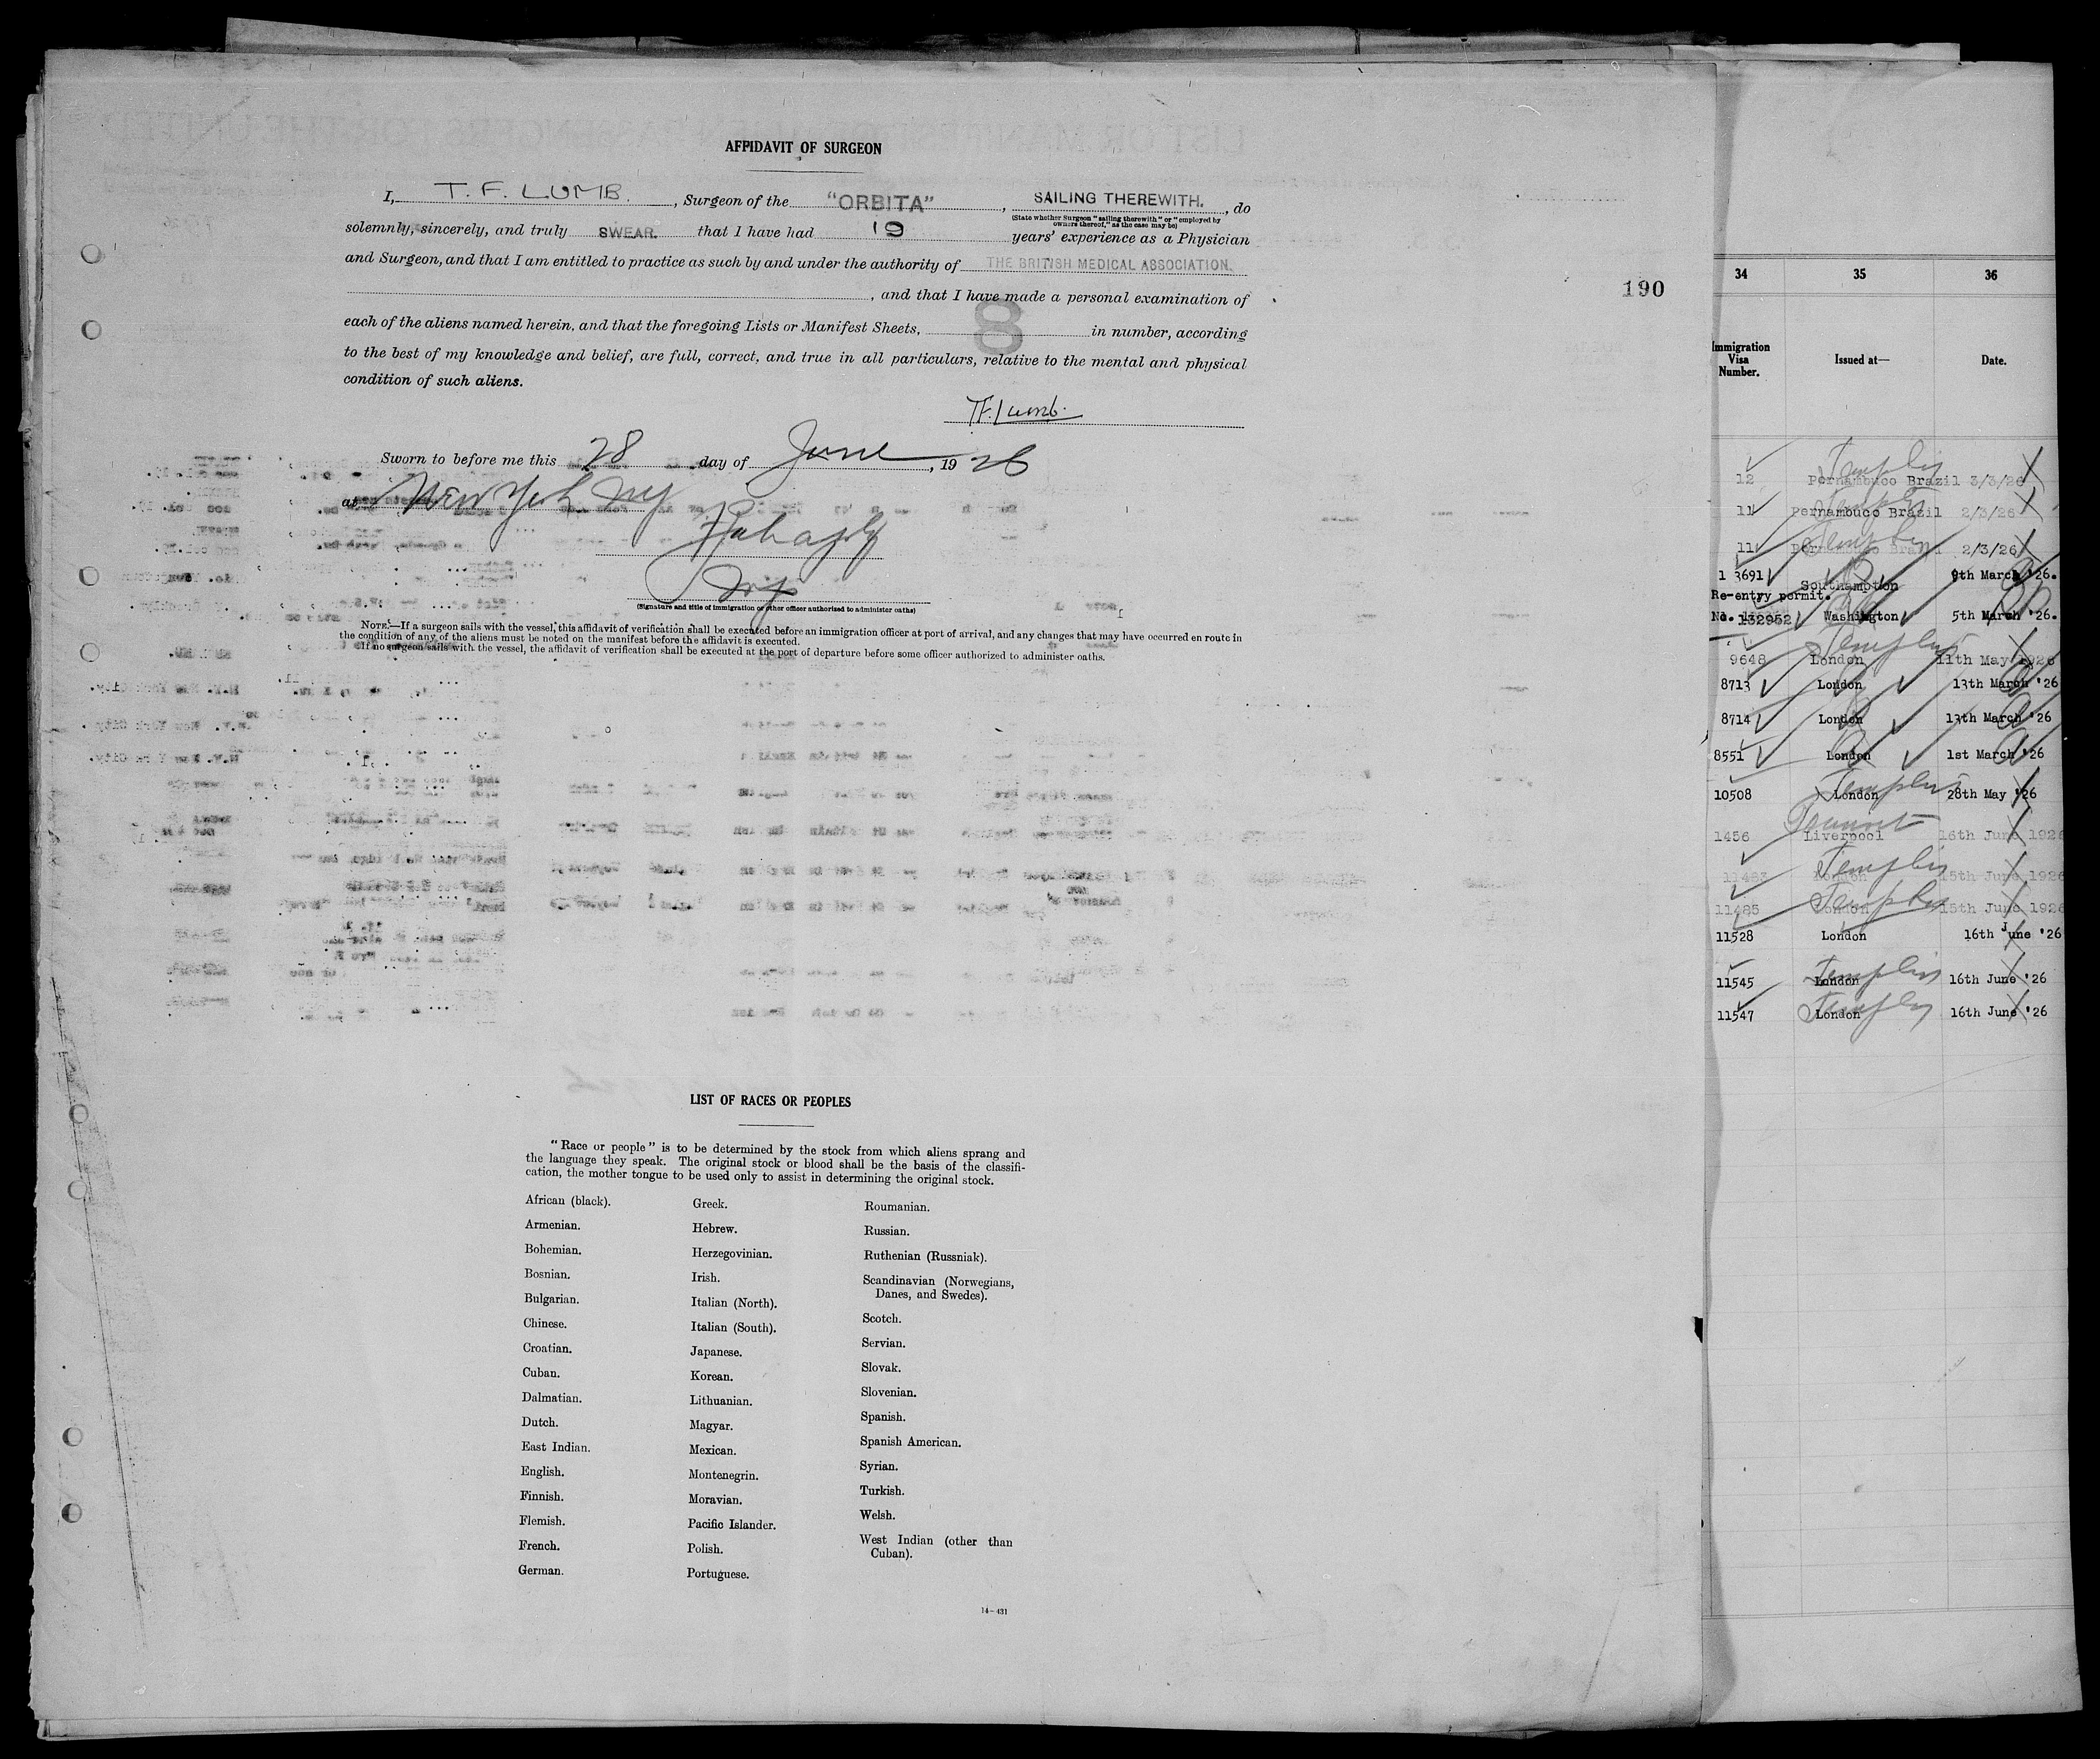 AFFIDAVIT OF SURGEON
I, T. F. LUMB. , Surgeon of the "ORBITA" , SAILING THEREWITH. , do
(State whether Surgeon "sailing therewith" or "employed by
owners thereof," as the case may be)
solemnly, sincerely, and truly SWEAR. that I have had 19 years' experience as a Physician
and Surgeon, and that I am entitled to practice as such by and under the authority of THE BRITISH MEDICAL ASSOCIATION.
, and that I have made a personal examination of
each of the aliens named herein, and that the foregoing Lists or Manifest Sheets, 8 in number, according
to the best of my knowledge and belief, are full, correct, and true in all particulars, relative to the mental and physical
condition of such aliens.
T.F. Lumb.
Sworn to before me this 28 day of June , 19 26
at New York NY
(Signature and title of immigration or other officer authorized to administer oaths)
NOTE.—If a surgeon sails with the vessel, this affidavit of verification shall be executed before an immigration officer at port of arrival, and any changes that may have occurred en route in
the condition of any of the aliens must be noted on the manifest before the affidavit is executed.
If no surgeon sails with the vessel, the affidavit of verification shall be executed at the port of departure before some officer authorized to administer oaths.
LIST OF RACES OR PEOPLES
"Race or people" is to be determined by the stock from which aliens sprang and
the language they speak. The original stock or blood shall be the basis of the classifi-
cation, the mother tongue to be used only to assist in determining the original stock.
African (black).
Armenian.
Bohemian.
Bosnian.
Bulgarian.
Chinese.
Croatian.
Cuban.
Dalmatian.
Dutch.
East Indian.
English.
Finnish.
Flemish.
French.
German.
Greek.
Hebrew.
Herzegovinian.
Irish.
Italian (North).
Italian (South).
Japanese.
Korean.
Lithuanian.
Magyar.
Mexican.
Montenegrin.
Moravian.
Pacific Islander.
Polish.
Portuguese.
Roumanian.
Russian.
Ruthenian (Russniak).
Scandinavian (Norwegians,
Danes, and Swedes).
Scotch.
Servian.
Slovak.
Slovenian.
Spanish.
Spanish American.
Syrian.
Turkish.
Welsh.
West Indian (other than
Cuban).
14-431
190
34 35 36
Immigration
Visa
Number.
Issued at—
Date.
12 Pernambuco Brazil 3/3/26
11 Pernambuco Brazil 2/3/26
11 Pernambuco Brazil 2/3/26
1 3691 Southampton 9th March '26.
Re-entry permit.
No. 132952 Washington 5th March '26.
9648 London 11th May 1926
8713 London 13th March '26
8714 London 13th March '26
8551 London 1st March '26
10508 London 28th May '26
1456 Liverpool 16th June 1926
11483 London 15th June 1926
11485 London 15th June 1926
11528 London 16th June '26
11545 London 16th June '26
11547 London 16th June '26